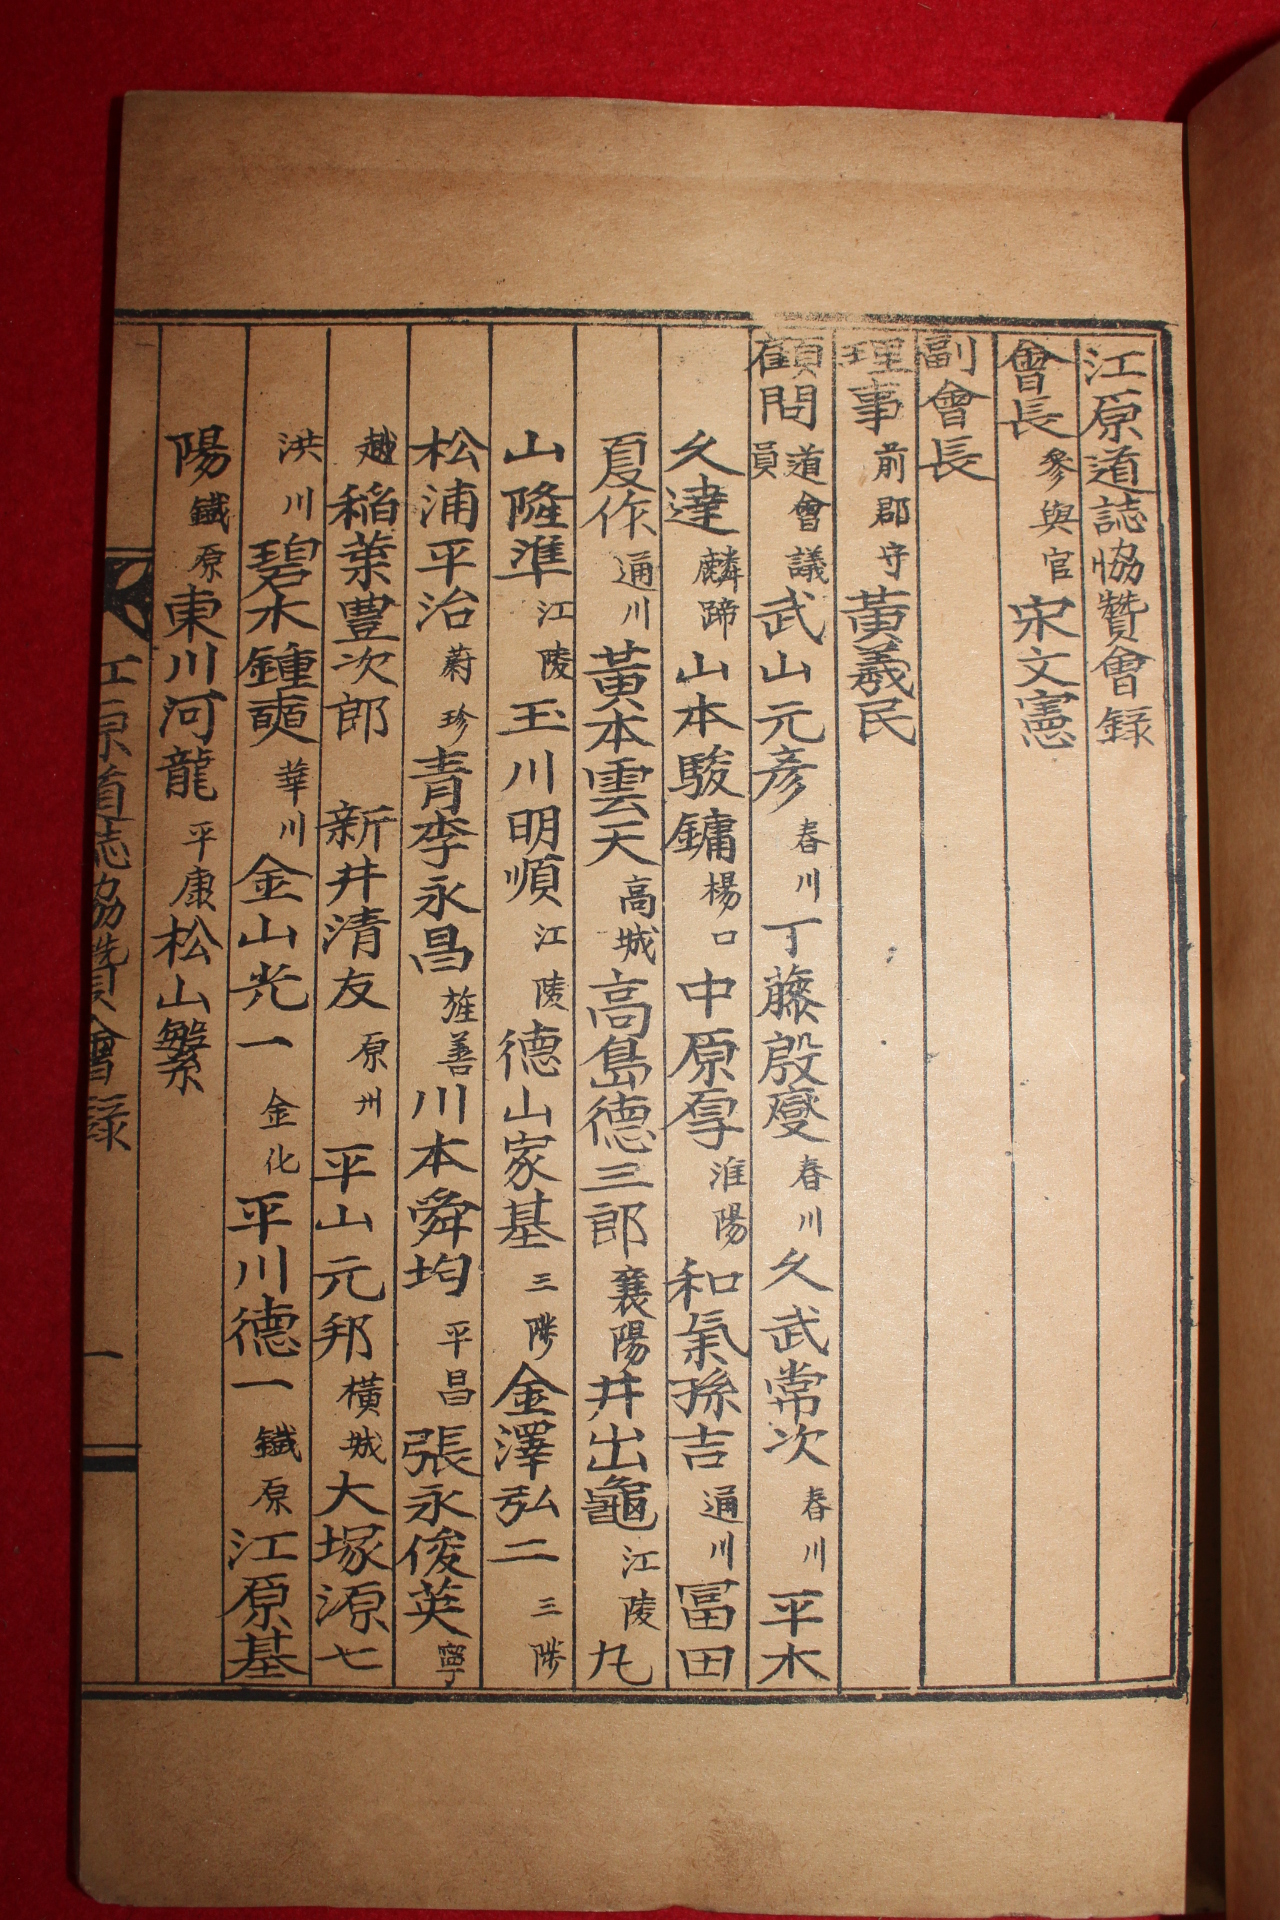 江原道誌協贊會録
會長 參與官 宋文憲
副會長
理事 前郡守 黃羲民
顧問 道會議員 武山元彥 春川 丁藤殷燮 春川 久武常次 春川 平木
久達 麟蹄 山本駿鏞 楊口 中原厚 淮陽 和氣孫吉 通川 冨田
夏作 通川 黃本雲天 高城 高島德三郎 襄陽 井出龜 江陵 丸
山隆準 江陵 玉川明順 江陵 德山家基 三陟 金澤弘二 三陟
松浦平治 蔚珍 青李永昌 旌善 川本舜均 平昌 張永俊英 寧
越 稲葉豊次郎 新井清友 原州 平山元邦 橫城 大塚源七
洪川 碧水鍾奭 華川 金山光一 金化 平川德一 鐵原 江原基
陽 鐵原 東川河龍 平康 松山繁
江原道誌協贊會録 一